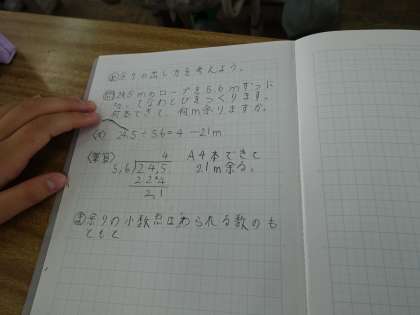 め 余りの出し方を考えよう。
問 24.5mのロープを5.6mずつに
切ってなわとびをつくります。
何本できて、何m余りますか。
(式) 24.5÷5.6=4…2.1m
(筆算)
4
5.6)24.5
22.4
2.1
A 4本できて
2.1m余る。
ま 余りの小数点はわられる数のも
ともと